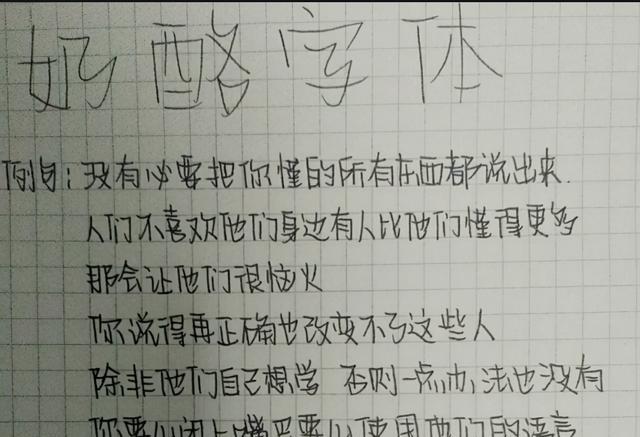 奶酪字体
例句：没有必要把你懂的所有东西都说出来.
人们不喜欢他们身边有人比他们懂得更多
那会让他们很恼火
你说得再正确也改变不了这些人
除非他们自己想学 否则一点办法也没有
你要么闭上嘴巴要么使用他们的语言